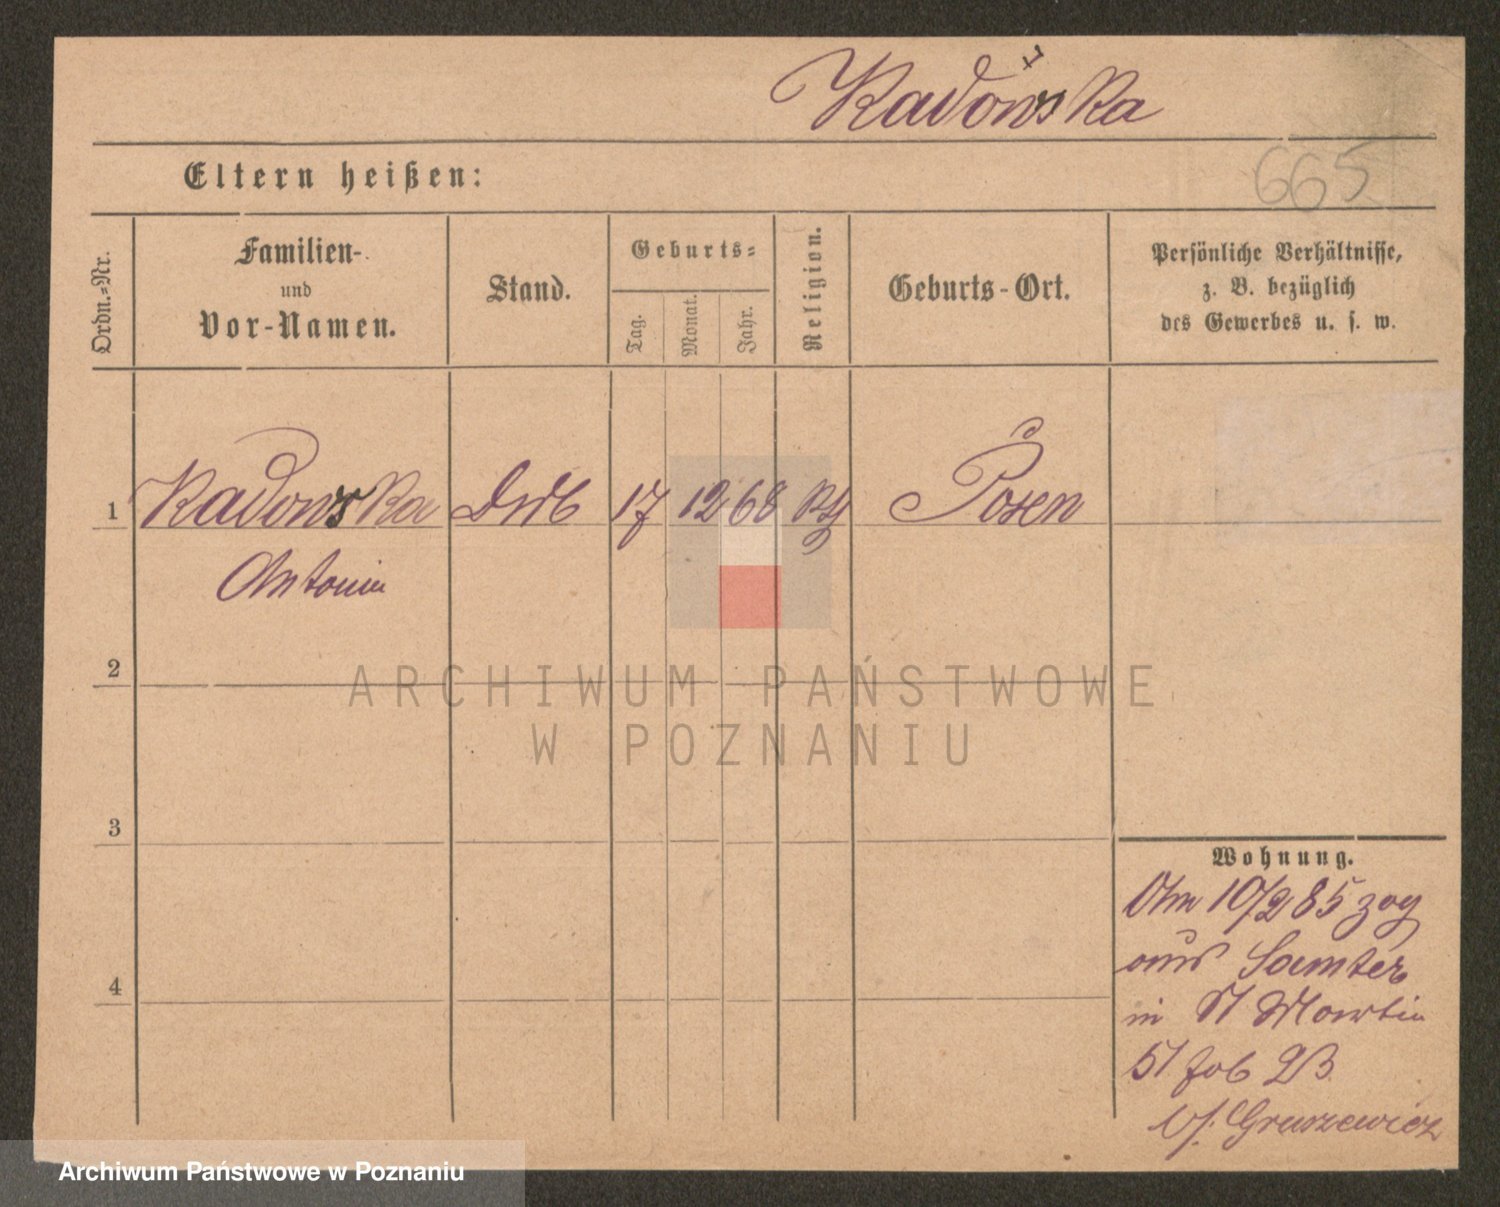 Kadowska
Eltern heißen:
665
Ordn.-Nr.
Familien-
und
Vor-Namen.
Stand.
Geburts-
Tag.
Monat.
Jahr.
Religion.
Geburts-Ort.
Persönliche Verhältnisse,
z. B. bezüglich
des Gewerbes u. s. w.
1 Kadowska 17 12 68 Posen
Antonin
2
3
4
Wohnung.
Am 10/2 85 zog
aus Samter
in St Martin
51
Gruszewicz
ARCHIWUM PAŃSTWOWE
W POZNANIU
Archiwum Państwowe w Poznaniu